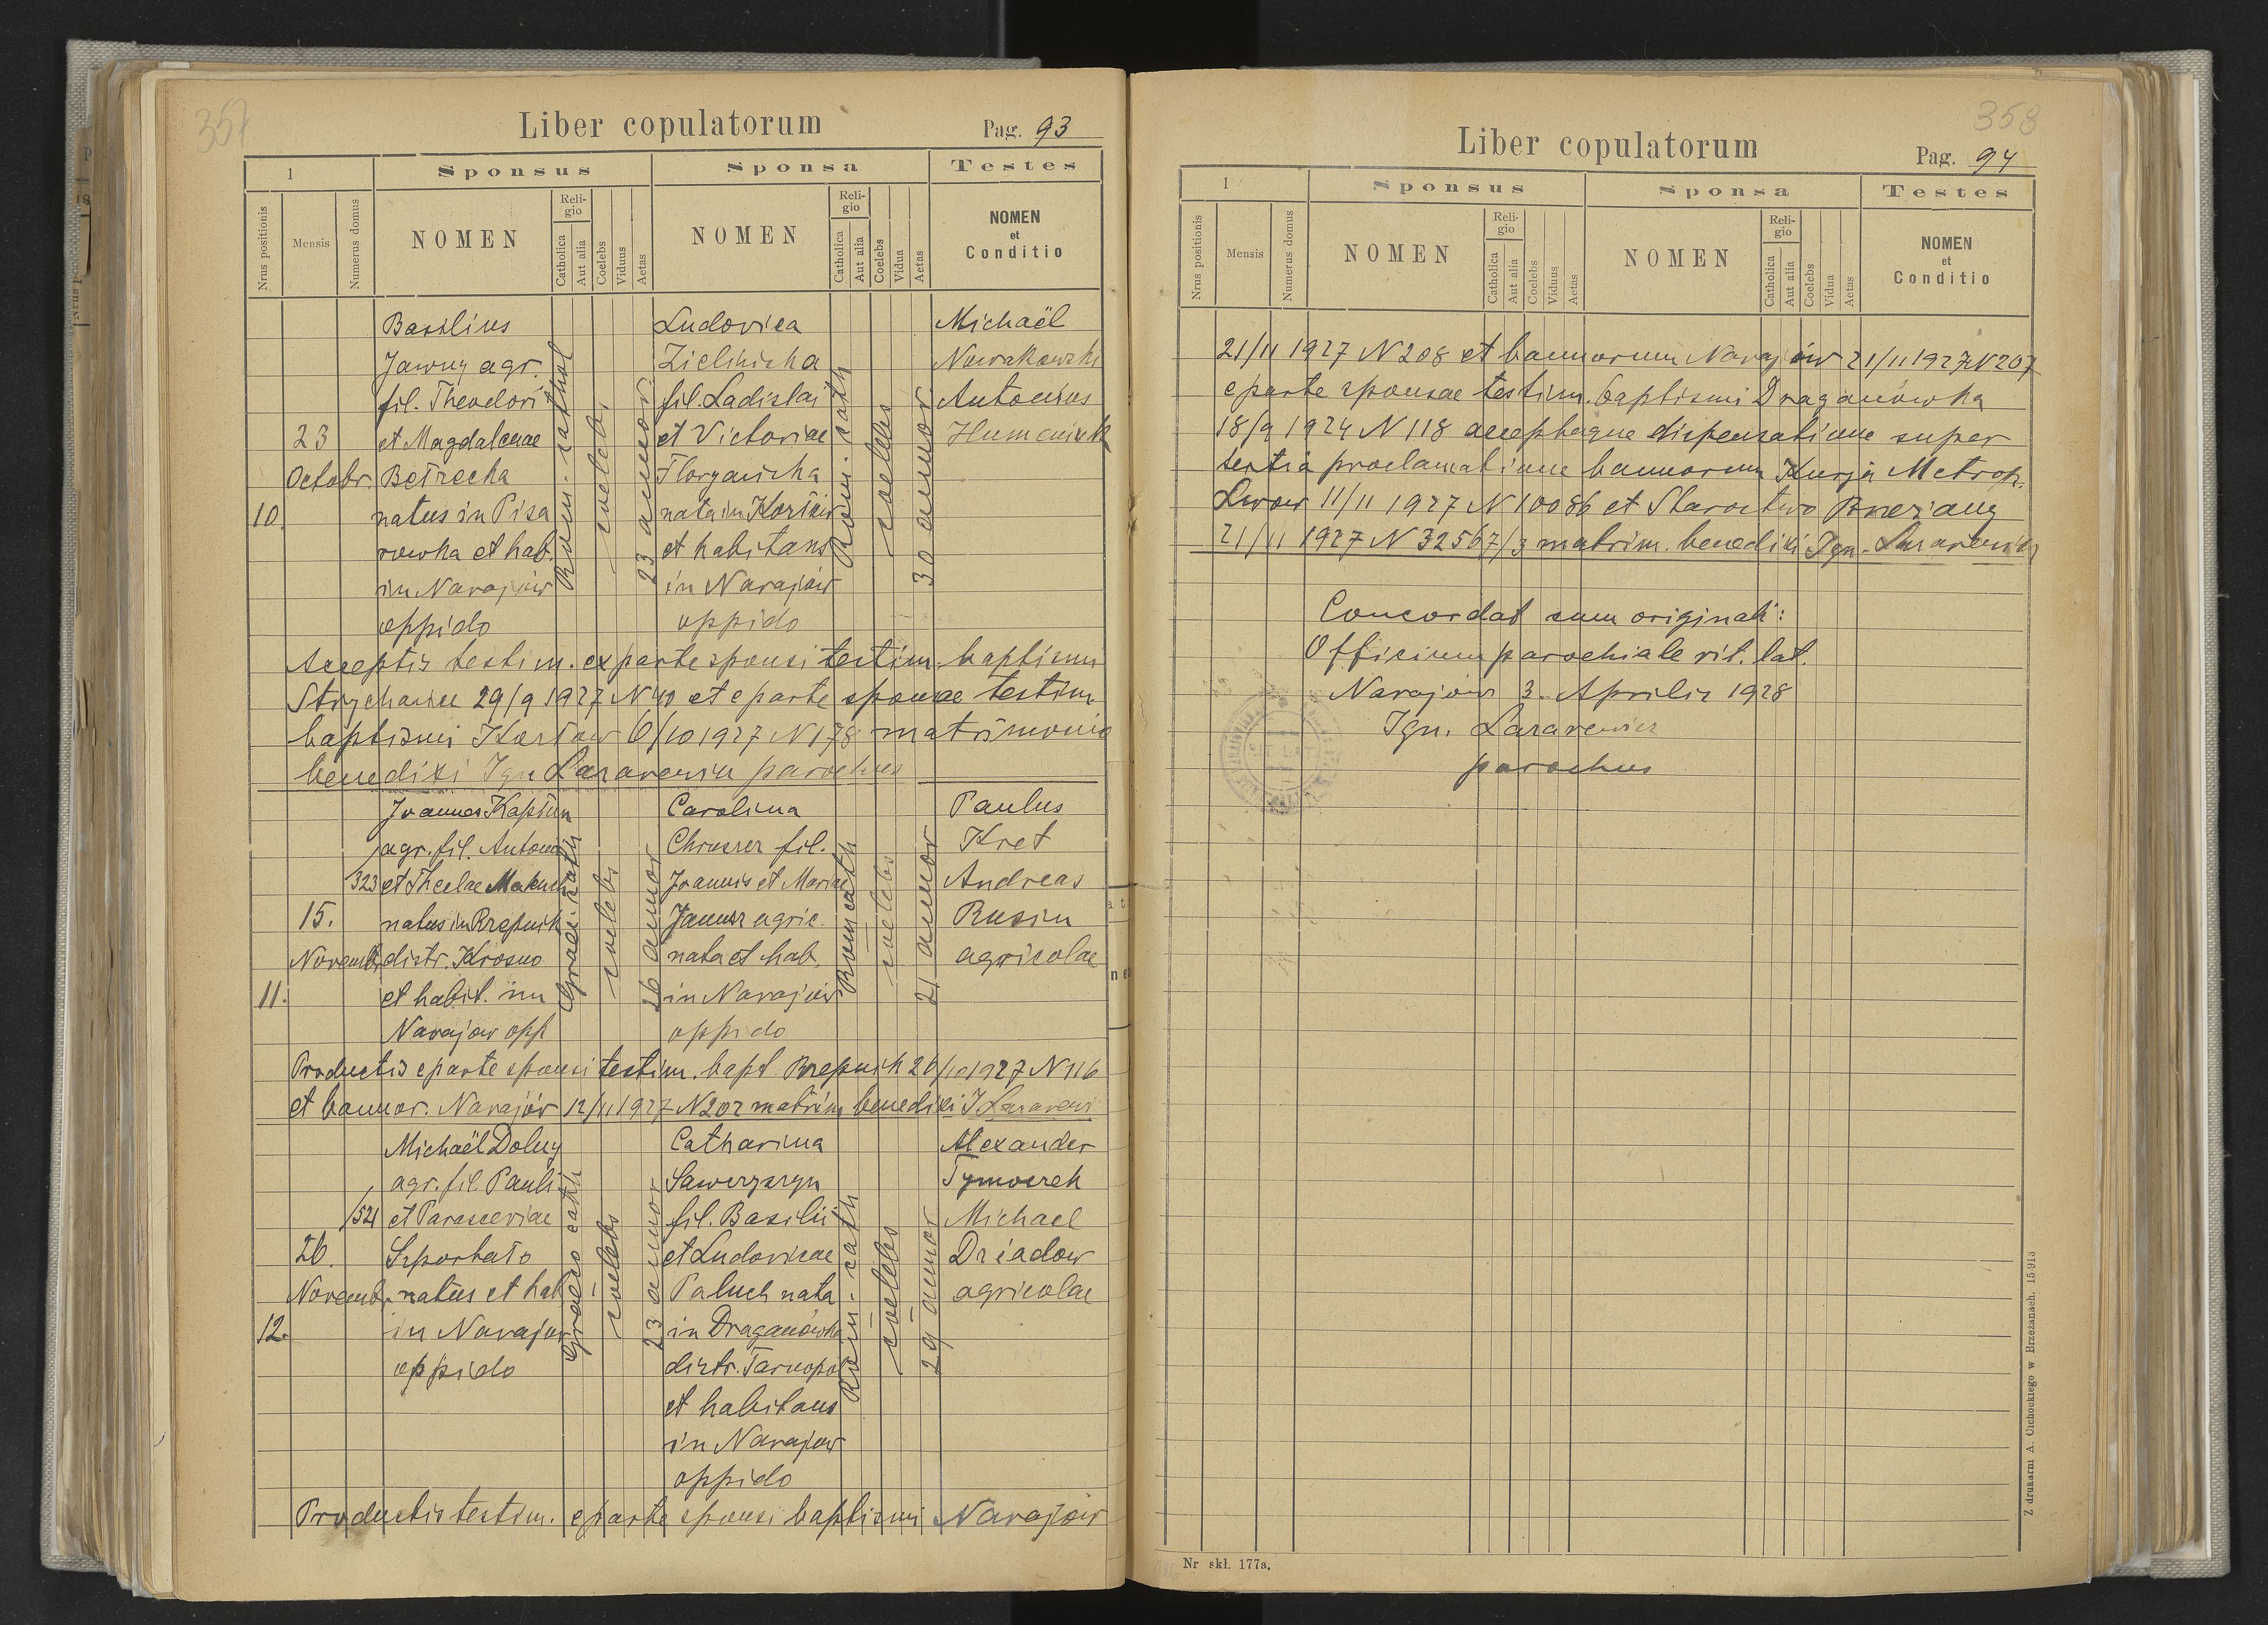 357
Liber copulatorum
Pag. 93
1
Sponsus
Sponsa
Testes
Nrus positionis
Mensis
Numerus domus
NOMEN
Religio
Catholica
Aut alia
Coelebs
Viduus
Aetas
NOMEN
Religio
Catholica
Aut alia
Coelebs
Vidua
Aetas
NOMEN
et
Conditio
10.
23
Octobr.
Basilius
Jawny agr.
fil. Theodori
et Magdalenae
Betrecha
natus in Pisa
rowka et hab.
in Narajów
oppido
Rom. cathol
coelebs
23 annor.
Ludovica
Zielinska
fil. Ladislai
et Victoriae
Floryanicha
nata in Kozłów
et habitans
in Narajów
oppido
Rom. cath
coelebs
30 annor
Michaël
Nowakowski
Antonius
Acceptis testim. ex parte sponsi testim. baptismi
29/9 1927 N 40 et e parte sponsae testim.
baptismi Kozłów 6/10 1927 N 178 matrimonio
benedixi Ign Lazarewicz parochus
11.
15.
Novemb.
323
Joannes Kaptun
agr. fil. Antonii
et Theclae
natus in Rzepnik
distr. Krosno
et habit. in
Narajow opp
Graeci cath
coelebs
26 annor
Carolina
fil.
Joannis et Mariae
Janusz agric.
nata et hab.
in Narajów
oppido
Rom cath
coelebs
21 annor
Paulus
Kret
Andreas
Rusin
agricolae
Productis e parte sponsi testim. bapt Rzepnik 26/10 1927 N 116
et bannor. Narajów 12/11 1927 N 202 matrim benedixi I Lazarewi
12.
26.
Novemb.
521
Michaël Dolny
agr. fil. Pauli
et Parasceviae
natus et hab
in Narajow
oppido
Graeco cath
coelebs
23 annor
Catharina
fil. Basilii
et Ludovicae
Paluch nata
in Draganówka
distr. Tarnopol
et habitans
in Narajow
oppido
Rom. cath
coelebs
29 annor
Alexander
Michael
Dziadow
agricolae
Productis testim. e parte sponsi baptismi Narajów
358
Liber copulatorum
Pag. 94
1
Sponsus
Sponsa
Testes
Nrus positionis
Mensis
Numerus domus
NOMEN
Religio
Catholica
Aut alia
Coelebs
Viduus
Aetas
NOMEN
Religio
Catholica
Aut alia
Coelebs
Vidua
Aetas
NOMEN
et
Conditio
21/11 1927 N 208 et bannorum Narajów 21/11 1927 N 207
e parte sponsae testim. baptismi Draganówka
18/9 1924 N 118 acceptaque dispensatione super
tertia proclamatione bannorum Kurja Metrop.
Lwow 11/11 1927 N 10086 et Starostwo Brzezany
21/11 1927 N 32567/3 matrim. benedixi Ign. Lazarewicz
Concordat cum originali:
Officium parochiale rit. lat.
Narajów 3. Aprilis 1928
Ign. Lazarewicz
parochus
Nr skł. 177a.
Z drukarni A. Cichockiego w Brzeżanach. 15-913